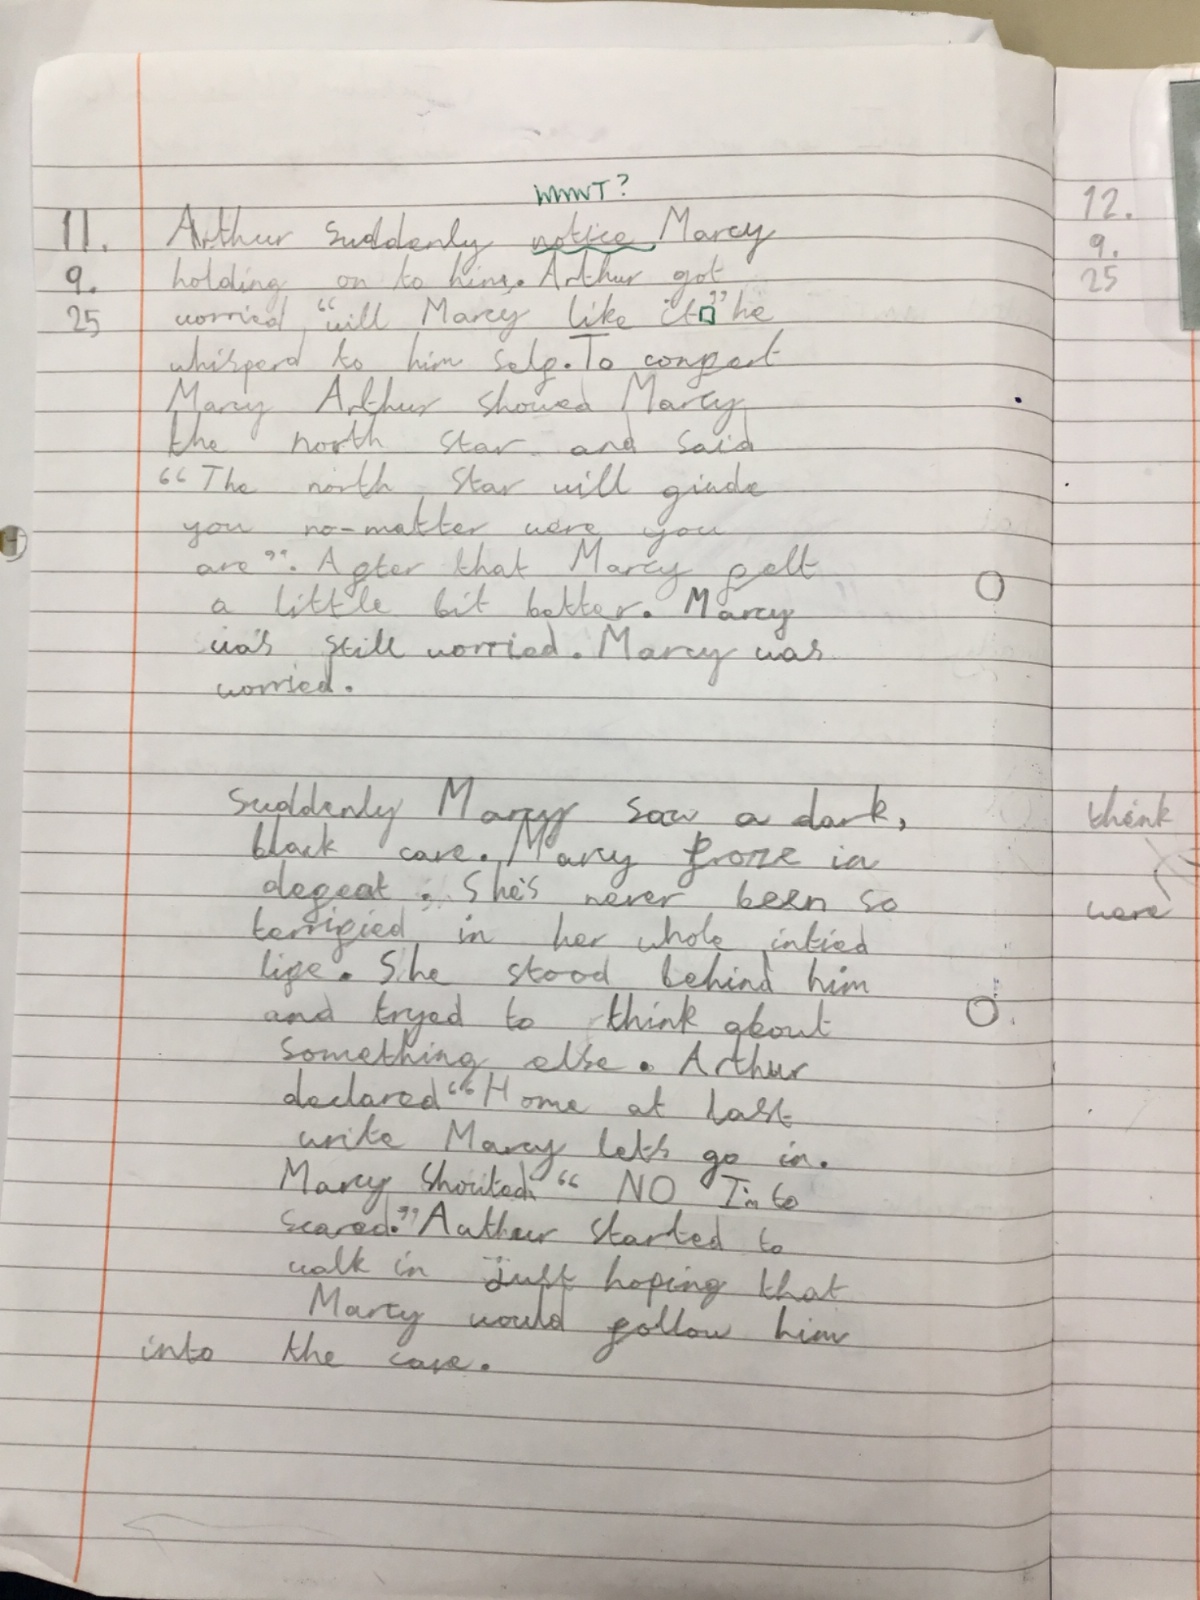 11. Arthur suddenly notice Marcy
9. holding on to him. Arthur got
25 worried "will Marcy like it" he
whisperd to him self. To confert
Marcy Arthur showed Marcy
the north star and said
"The north star will giude
you no-matter were you
are". After that Marcy felt
a little bit better. Marcy
was still worried. Marcy was
worried.
Suddenly Marcy saw a dark,
black cave. Marcy froze in
defeat. She's never been so
terrified in her whole intied
life. She stood behind him
and tryed to think about
something else. Arthur
declared "Home at last
write Marcy let's go in.
Marcy shouted "NO I'm to
scared." Authur started to
walk in just hoping that
Marcy would follow him
into the cave.
12.
9.
25
think
were